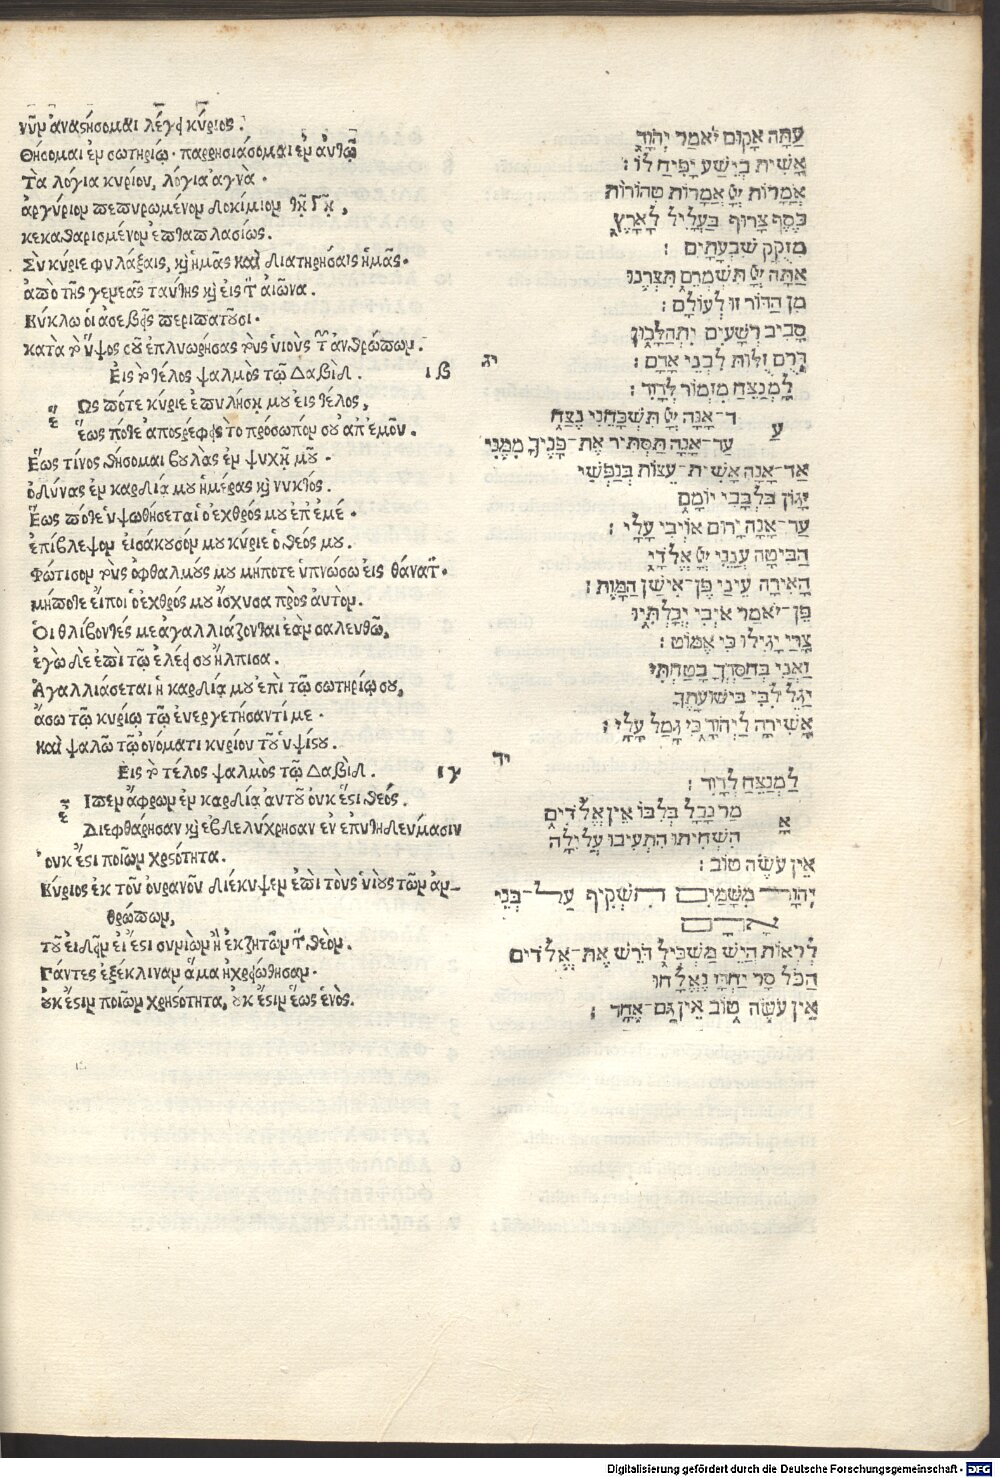 νῦν ἀναστήσομαι λέγει κύριος.
θήσομαι ἐν σωτηρίῳ · παρρησιάσομαι ἐν αὐτῷ
Τὰ λόγια κυρίου, λόγια ἁγνὰ ·
ἀργύριον πεπυρωμένον δοκίμιον τῇ γῇ,
κεκαθαρισμένον ἑπταπλασίως.
Σὺ κύριε φυλάξαις, κỳ ἡμᾶς καὶ διατηρήσαις ἡμᾶς.
ἀπὸ τῆς γενεᾶς ταύτης κỳ εἰς τ αἰῶνα.
Κύκλω οἱ ἀσεβεῖς περιπατοῦσι.
κατὰ τὸ ὕψος σοῦ ἐπλυώρησας τοὺς υἱοὺς τ ἀνθρώπων.
Εἰς τὸ τέλος ψαλμὸς τῷ Δαβὶδ. ιβ
Ως πότε κύριε ἐπιλήσῃ μου εἰς τέλος,
ἕως πότε ἀποστρέφεις τὸ πρόσωπον σου ἀπ ἐμοῦ.
Ἕως τίνος θήσομαι βουλὰς ἐν ψυχῇ μοῦ.
ὀδύνας ἐν καρδίᾳ μου ἡμέρας κỳ νυκτός.
Ἕως πότε ὑψωθήσεται ὁ ἐχθρός μου ἐπ ἐμέ.
ἐπίβλεψον εἰσάκουσόν μου κύριε ὁ θεός μου.
Φώτισον τοὺς ὀφθαλμούς μου μήποτε ὑπνώσω εἰς θάνατ.
μήποτε εἴποι ὁ ἐχθρός μου ἴσχυσα πρὸς αὐτόν.
Οἱ θλίβοντές με ἀγαλλιάζονται ἐὰν σαλευθῶ,
ἐγὼ δὲ ἐπὶ τῷ ἐλέει σου ἤλπισα.
Ἀγαλλιάσεται ἡ καρδία μου ἐπὶ τῷ σωτηρίῳ σου,
ἄσω τῷ κυρίῳ τῷ ἐνεργετήσαντί με.
καὶ ψαλῶ τῷ ὀνόματι κυρίου τοῦ ὑψίστου.
Εἰς τὸ τέλος ψαλμὸς τῷ Δαβὶδ. ιγ
Ιπεν ἄφρων ἐν καρδίᾳ αὐτοῦ οὐκ ἔστι θεός.
Διεφθάρησαν κỳ ἐβδελύχρησαν ἐν ἐπιτηδεύμασιν
οὐκ ἔστι ποιῶν χρστότητα.
Κύριος ἐκ τοῦ οὐρανοῦ διέκυψεν ἐπὶ τοὺς υἱοὺς τῶν ἀν-
θρώπων,
τοῦ εἰδεῖν εἰ ἔστι συνιῶν ἢ ἐκζητῶν τ θεόν.
Πάντες ἐξέκλιναν ἅμα ἠχρειώθησαν.
οὐκ ἔστιν ποιῶν χρηστότητα, οὐκ ἔστιν ἕως ἑνός.
עַתָּה אָקוּם יֹאמַר יְהֹוָה
אָשִׁית בְּיֵשַׁע יָפִיחַ לוֹ :
אִמֲרוֹת יְיָ אֲמָרוֹת טְהוֹרוֹת
כֶּסֶף צָרוּף בַּעֲלִיל לָאָרֶץ
מְזֻקָּק שִׁבְעָתַיִם :
אַתָּה יְיָ תִּשְׁמְרֵם תִּצְּרֶנּוּ
מִן הַדּוֹר זוּ לְעוֹלָם :
סָבִיב רְשָׁעִים יִתְהַלָּכוּן
כְּרֻם זֻלּוּת לִבְנֵי אָדָם : יג
לַמְנַצֵּחַ מִזְמוֹר לְדָוִד :
ד־אָנָה יְיָ תִּשְׁכָּחֵנִי נֶצַח
ע עַד־אָנָה תַּסְתִּיר אֶת־פָּנֶיךָ מִמֶּנִּי
עַד־אָנָה אָשִׁית־עֵצוֹת בְּנַפְשִׁי
יָגוֹן בִּלְבָבִי יוֹמָם
עַד־אָנָה יָרוּם אוֹיְבִי עָלָי :
הַבִּיטָה עֲנֵנִי יְיָ אֱלֹדָי
הָאִירָה עֵינַי פֶּן־אִישַׁן הַמָּוֶת :
פֶּן־יֹאמַר אֹיְבִי יְכָלְתִּיו
צָרַי יָגִילוּ כִּי אֶמּוֹט :
וַאֲנִי בְּחַסְדְּךָ בָטַחְתִּי
יָגֵל לִבִּי בִּישׁוּעָתֶךָ
אָשִׁירָה לַיהוָה כִּי גָמַל עָלָי :
יד
לַמְנַצֵּחַ לְדָוִד :
מַר נָבָל בְּלִבּוֹ אֵין אֱלֹדִים
אָ הִשְׁחִיתוּ הִתְעִיבוּ עֲלִילָה
אֵין עֹשֵׂה טוֹב :
יְהוָה מִשָּׁמַיִם הִשְׁקִיף עַל־בְּנֵי
אָדָם
לִרְאוֹת הֲיֵשׁ מַשְׂכִּיל דֹּרֵשׁ אֶת־אֱלֹדִים
הַכֹּל סָר יַחְדָּו נֶאֱלָחוּ
אֵין עֹשֵׂה טוֹב אֵין גַּם־אֶחָד :
Digitalisierung gefördert durch die Deutsche Forschungsgemeinschaft - DFG